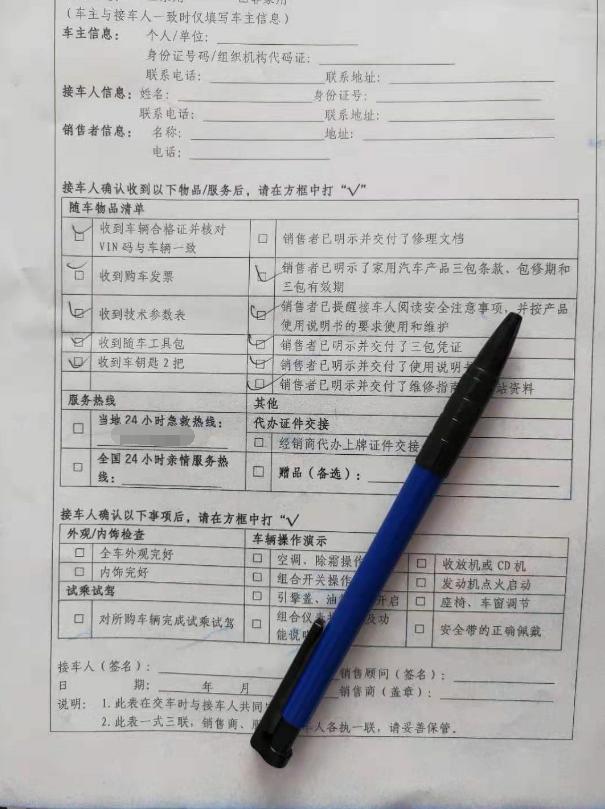 (车主与接车人一致时仅填写车主信息)
车主信息： 个人/单位：
身份证号码/组织机构代码证：
联系电话： 联系地址：
接车人信息：姓名： 身份证号：
联系电话： 联系地址：
销售者信息： 名称： 地址：
电话：
接车人确认收到以下物品/服务后，请在方框中打“√”
随车物品清单
收到车辆合格证并核对
VIN 码与车辆一致
销售者已明示并交付了修理文档
收到购车发票
销售者已明示了家用汽车产品三包条款、包修期和
三包有效期
收到技术参数表
销售者已提醒接车人阅读安全注意事项，并按产品
使用说明书的要求使用和维护
收到随车工具包
销售者已明示并交付了三包凭证
收到车钥匙 2 把
销售者已明示并交付了使用说明
销售者已明示并交付了维修指南 站资料
服务热线 其他
当地 24 小时急救热线：
代办证件交接
经销商代办上牌证件交接
全国 24 小时亲情服务热
线：
赠品（备选）：
接车人确认以下事项后，请在方框中打“√
外观/内饰检查 车辆操作演示
全车外观完好 空调、除霜操作 收放机或 CD 机
内饰完好 组合开关操作 发动机点火启动
试乘试驾 引擎盖、油 开启 座椅、车窗调节
对所购车辆完成试乘试驾
组合仪 及功
能说 安全带的正确佩戴
接车人（签名）： 销售顾问（签名）：
日 期： 年 月 销售商（盖章）：
说明： 1.此表在交车时与接车人共同
2.此表一式三联，销售商、 人各执一联，请妥善保管.